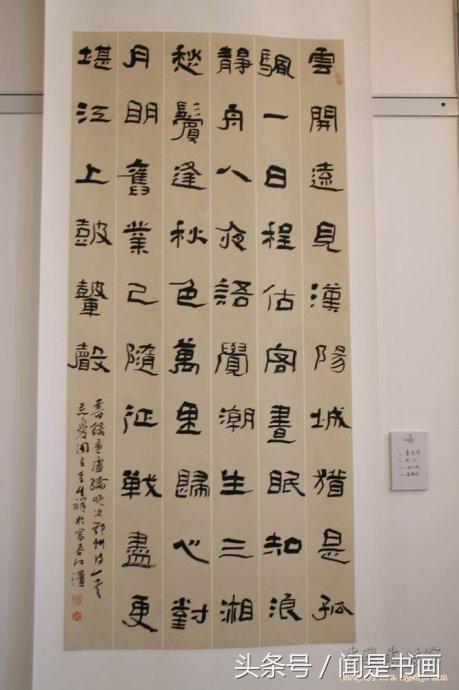 雲開遠見漢陽城猶是孤
颿一日程估客晝眠知浪
靜舟人夜語覺潮生三湘
愁鬢逢秋色萬里歸心對
月明舊業已隨征戰盡更
堪江上鼓鼙聲
書錄唐盧綸晚次鄂州詩一首
於富春江濱
头条号／闻是书画